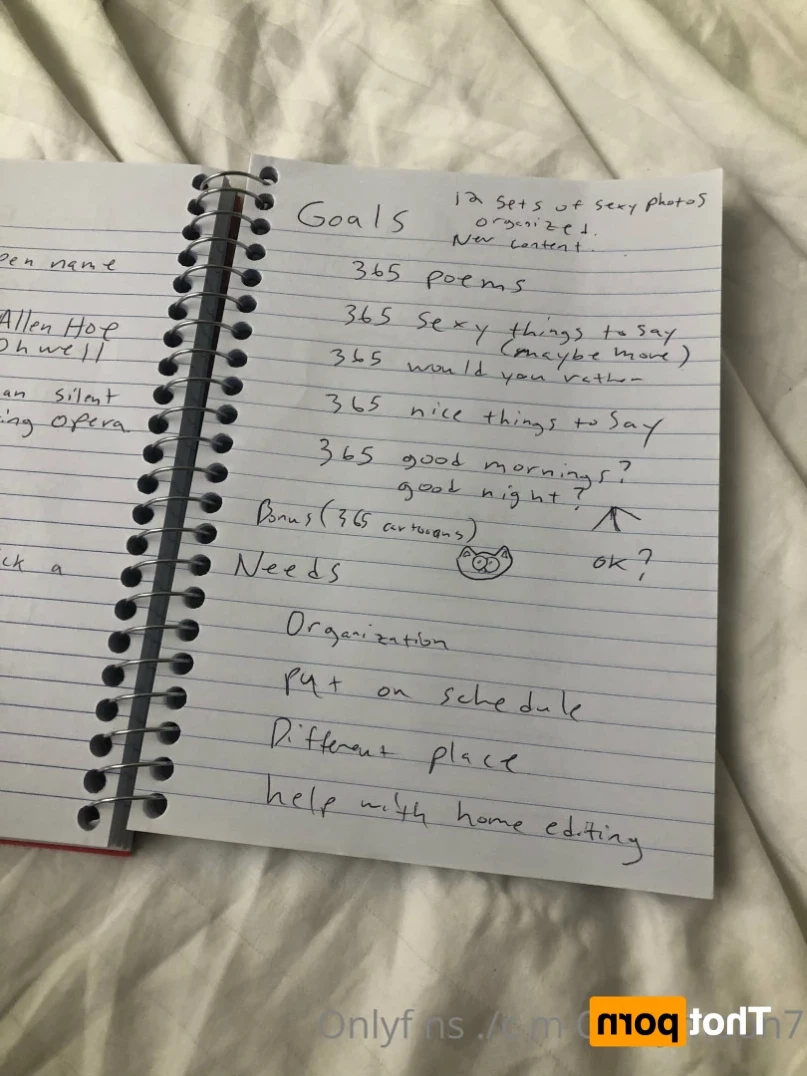 pen name
Allen Hoe
Oh well
an silent
ing opera
ck a
Goals
12 sets of sexy photos
organized.
New content.
365 poems
365 sexy things to say
(maybe more)
365 would you rather
365 nice things to say
365 good mornings?
good night?
Bonus (365 cartoons)
OK?
Needs
Organization
put on schedule
Different place
help with home editing
Thot porn